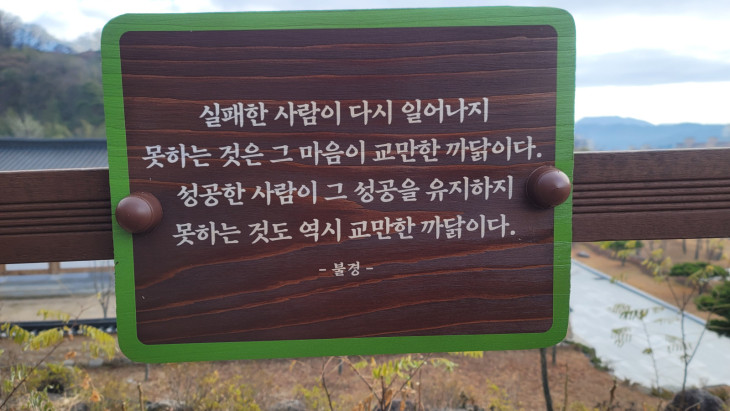 실패한 사람이 다시 일어나지
못하는 것은 그 마음이 교만한 까닭이다.
성공한 사람이 그 성공을 유지하지
못하는 것도 역시 교만한 까닭이다.
- 불경 -